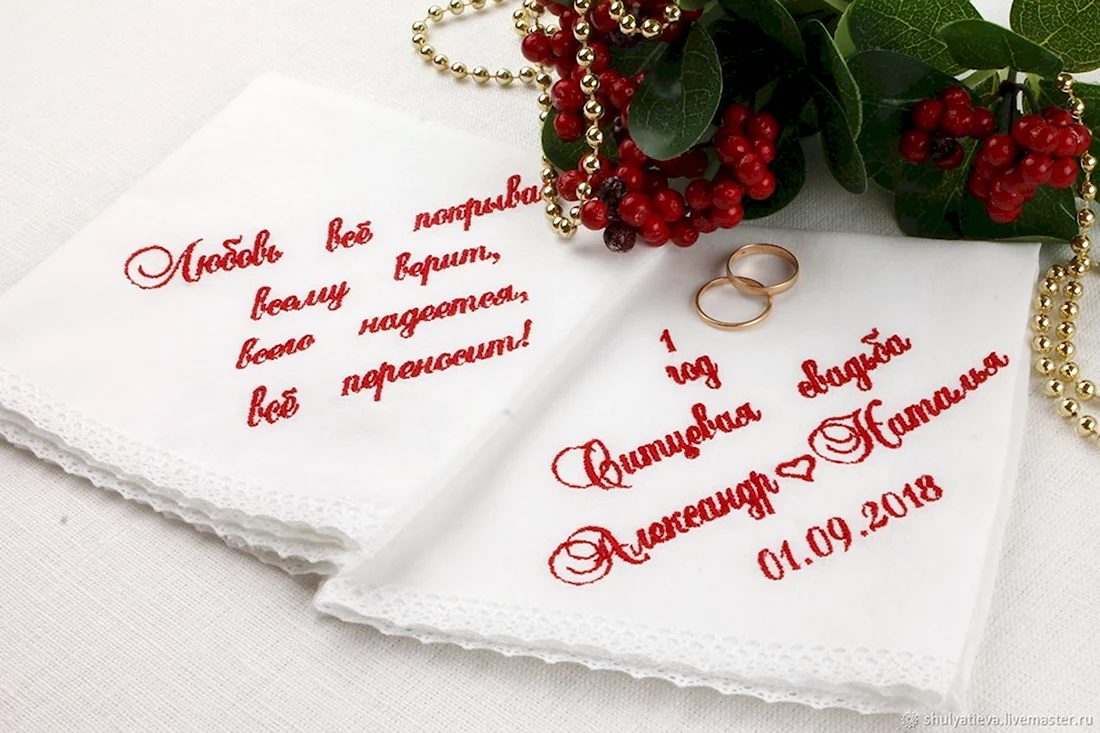 Любовь всё покрыва
всему верит,
всего надеется,
всё переносит!
1
год
Ситцевая свадьба
Александр Наталья
01.09.2018
shulyatieva.livemaster.ru